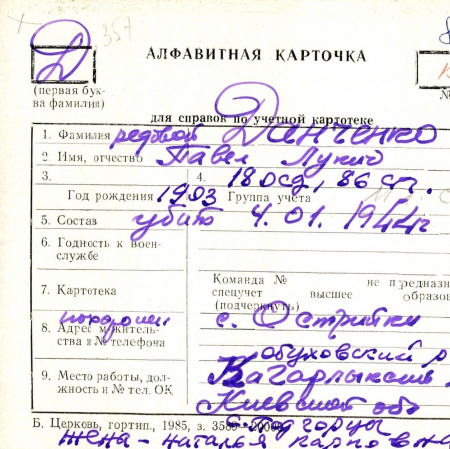 357
Д
АЛФАВИТНАЯ КАРТОЧКА
(первая бук-
ва фамилии)
для справок по учетной картотеке
1. Фамилия рядовой Данченко
2. Имя, отчество Павел Лукич
3. 4. 18 осд, 86 сп.
Год рождения 1903 Группа учета
5. Состав убит 4.01.1944г
6. Годность к воен-
службе
7. Картотека
Команда № не предназна
спецучет высшее образов
(подчеркнуть)
8. Адрес и житель-
ства и № телефона
с. Острійки
обуховский р
Кагарлыкский
9. Место работы, дол-
жность и № тел. ОК
Киевской обл
с. Подгорцы
Б. Церковь, гортип., 1985, з. 3589—20000
жена - Наталья Карповна